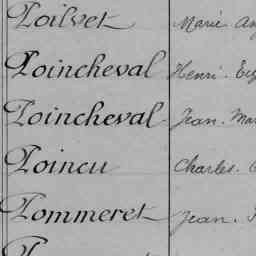 Poilvet Marie
Poincheval Henri
Poincheval Jean
Poincu Charles
Pommeret Jean